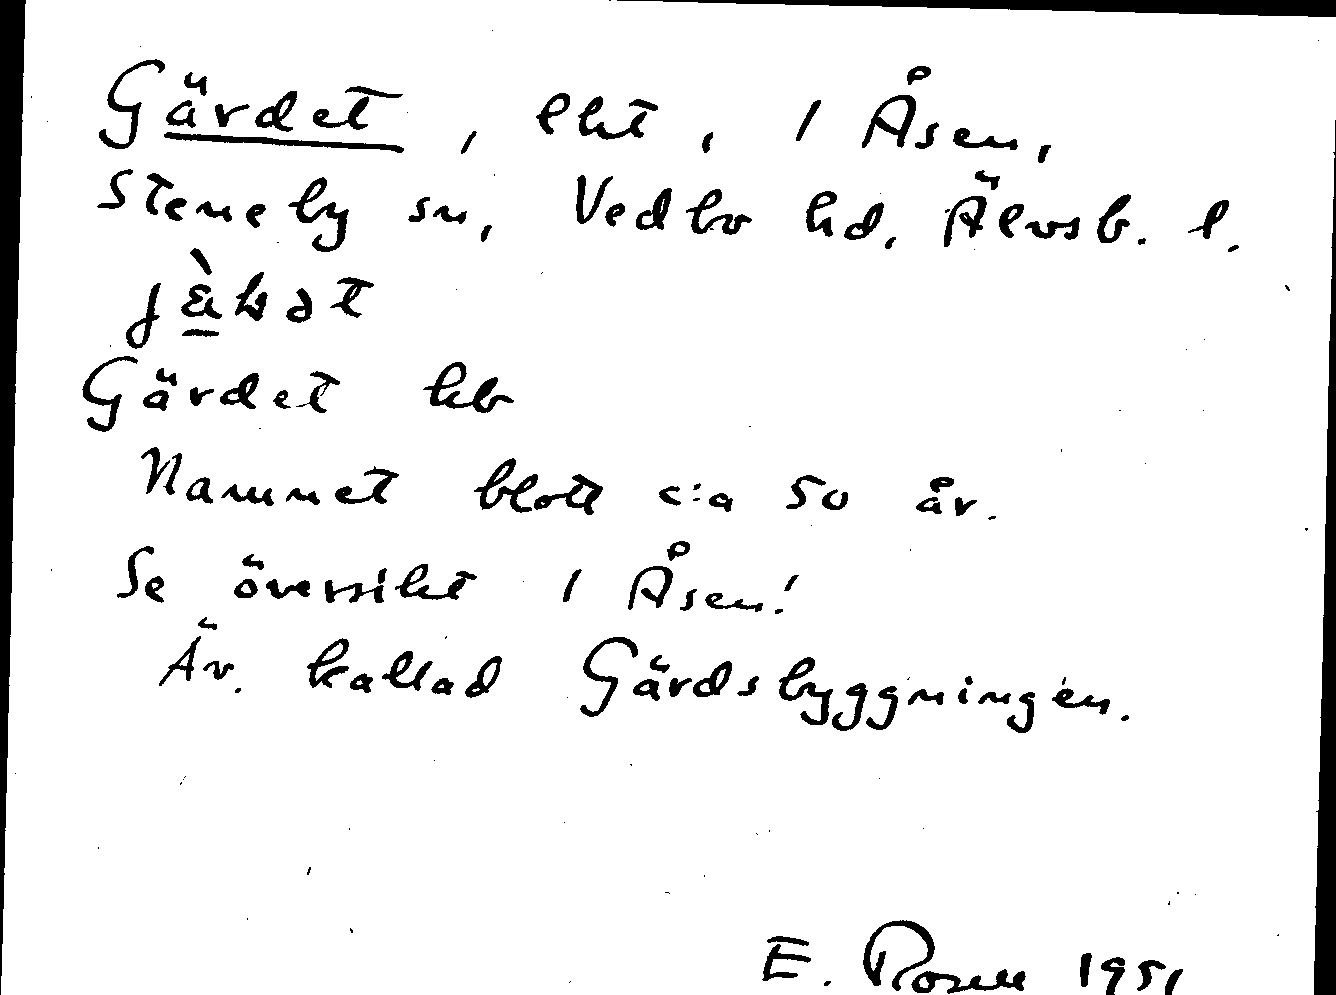 Gärdet, lht, 1 Åsen,
Steneby sn, Vedbo hd. Älvsb. l.
Gärdet kb
Namnet blott c:a 50 år.
Se översikt 1 Åsen!
Äv. kallad Gärdsbyggningen.
E. Rosell 1951